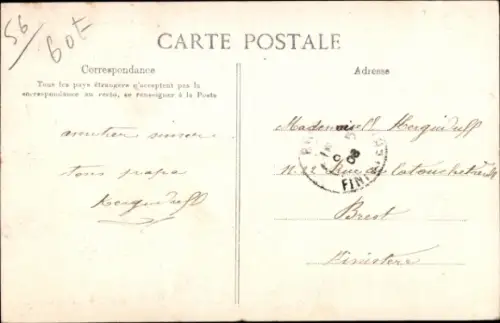 56
60F
CARTE POSTALE
Correspondance
Tous les pays étrangers n'acceptent pas la
correspondance au recto, se renseigner à la Poste
Adresse
amitier sincère
tons papa
Kerguiduff
Mademoiselle Kerguiduff
Rue de
Brest
Finistère
08
FINISTERE